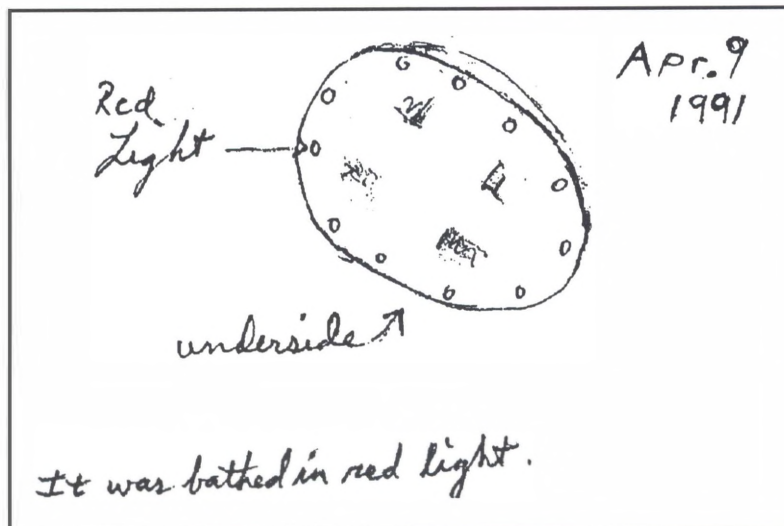 Apr. 9
1991
Red
Light
underside
It was bathed in red light.